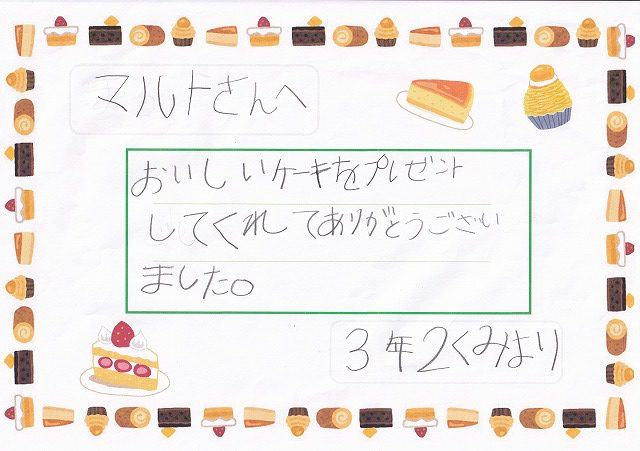 マルトさんへ
おいしいケーキをプレゼント
してくれしてありがとうござい
ました。
3年2くみより